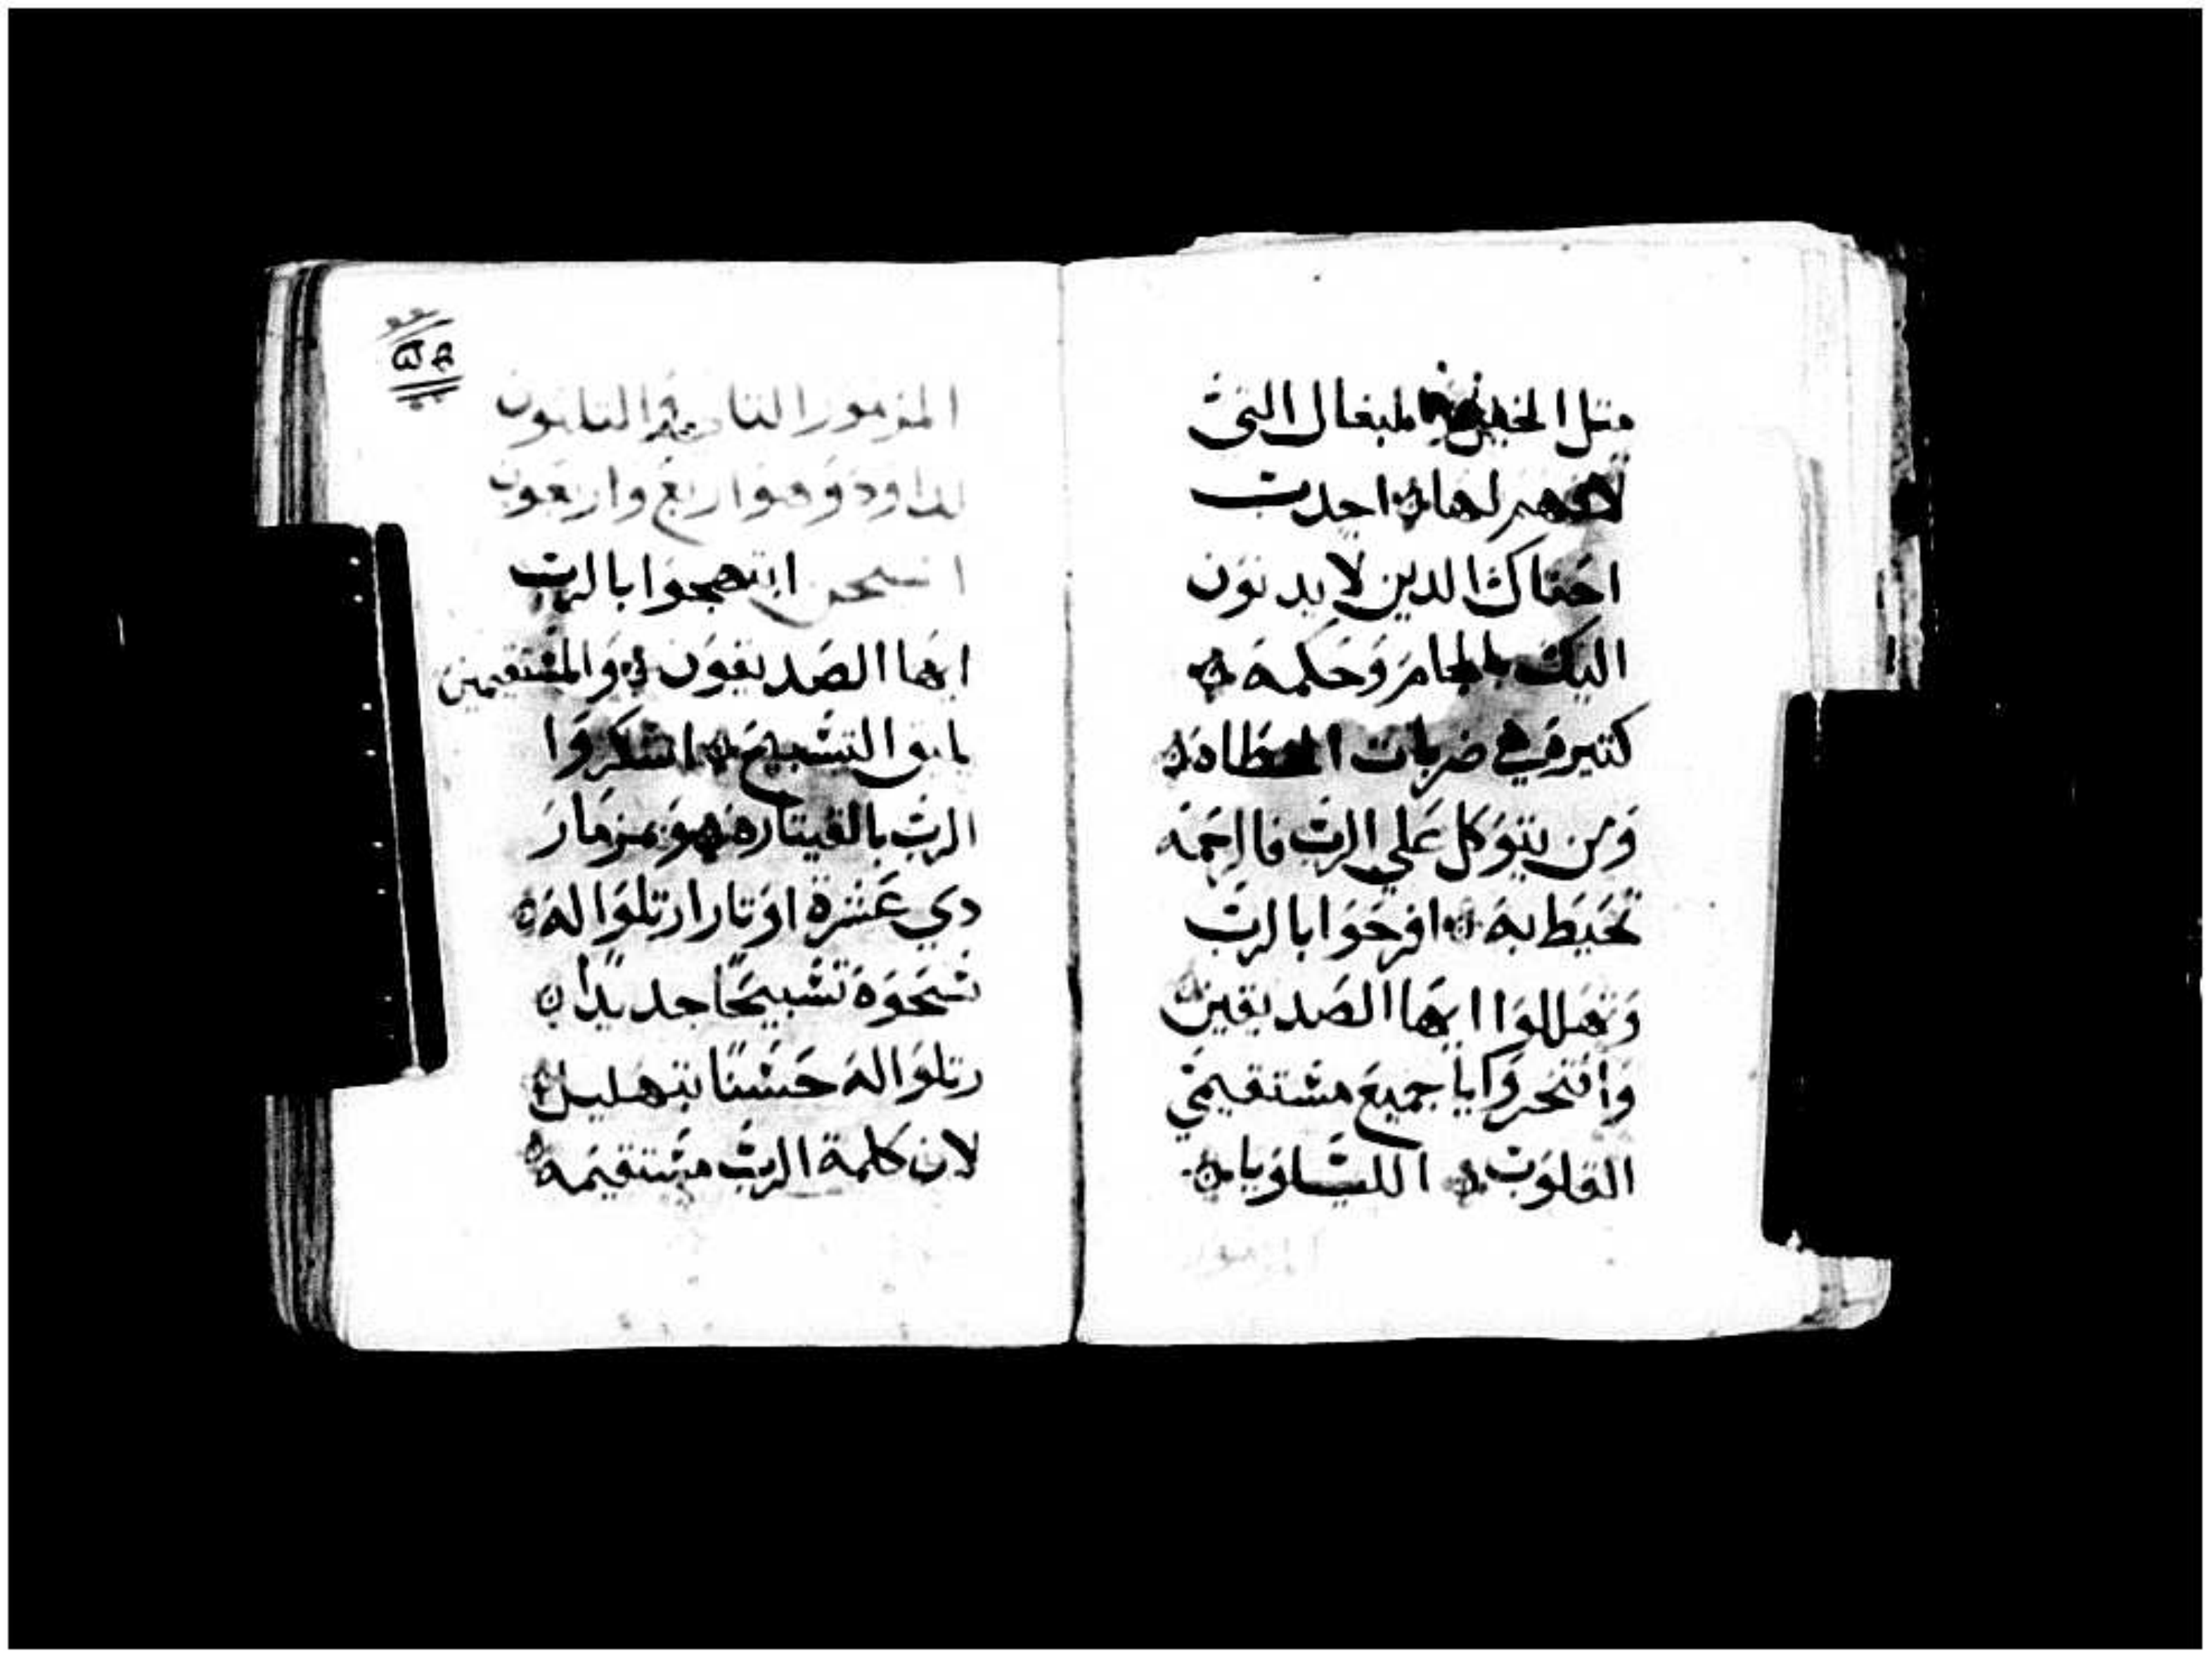 متل الخيل والبغال التي
لافهم لها احدب
احناك الدين لا يدنون
اليك بالجام وحكمه
كتيره هي ضربات الخطاه
ومن يتوكل علي الرب فالرحمه
تحيط به افرحوا بالرب
وتهللوا ايها الصديقين
وافتخروا يا جميع مستقيمي
القلوب الليلويا
المزمور
المزمور التاني والتلتون
لداوود وهو اربع واربعون
ابتهجوا بالرب
ايها الصديقون والمستقيمين
يليق التسبيح اشكروا
الرب بالقيتاره وبمزمار
دي عشرة اوتار ارتلوا له
سبحوه تسبيحا جديدا
رتلوا له حسنا بتهليل
لان كلمة الرب مستقيمه